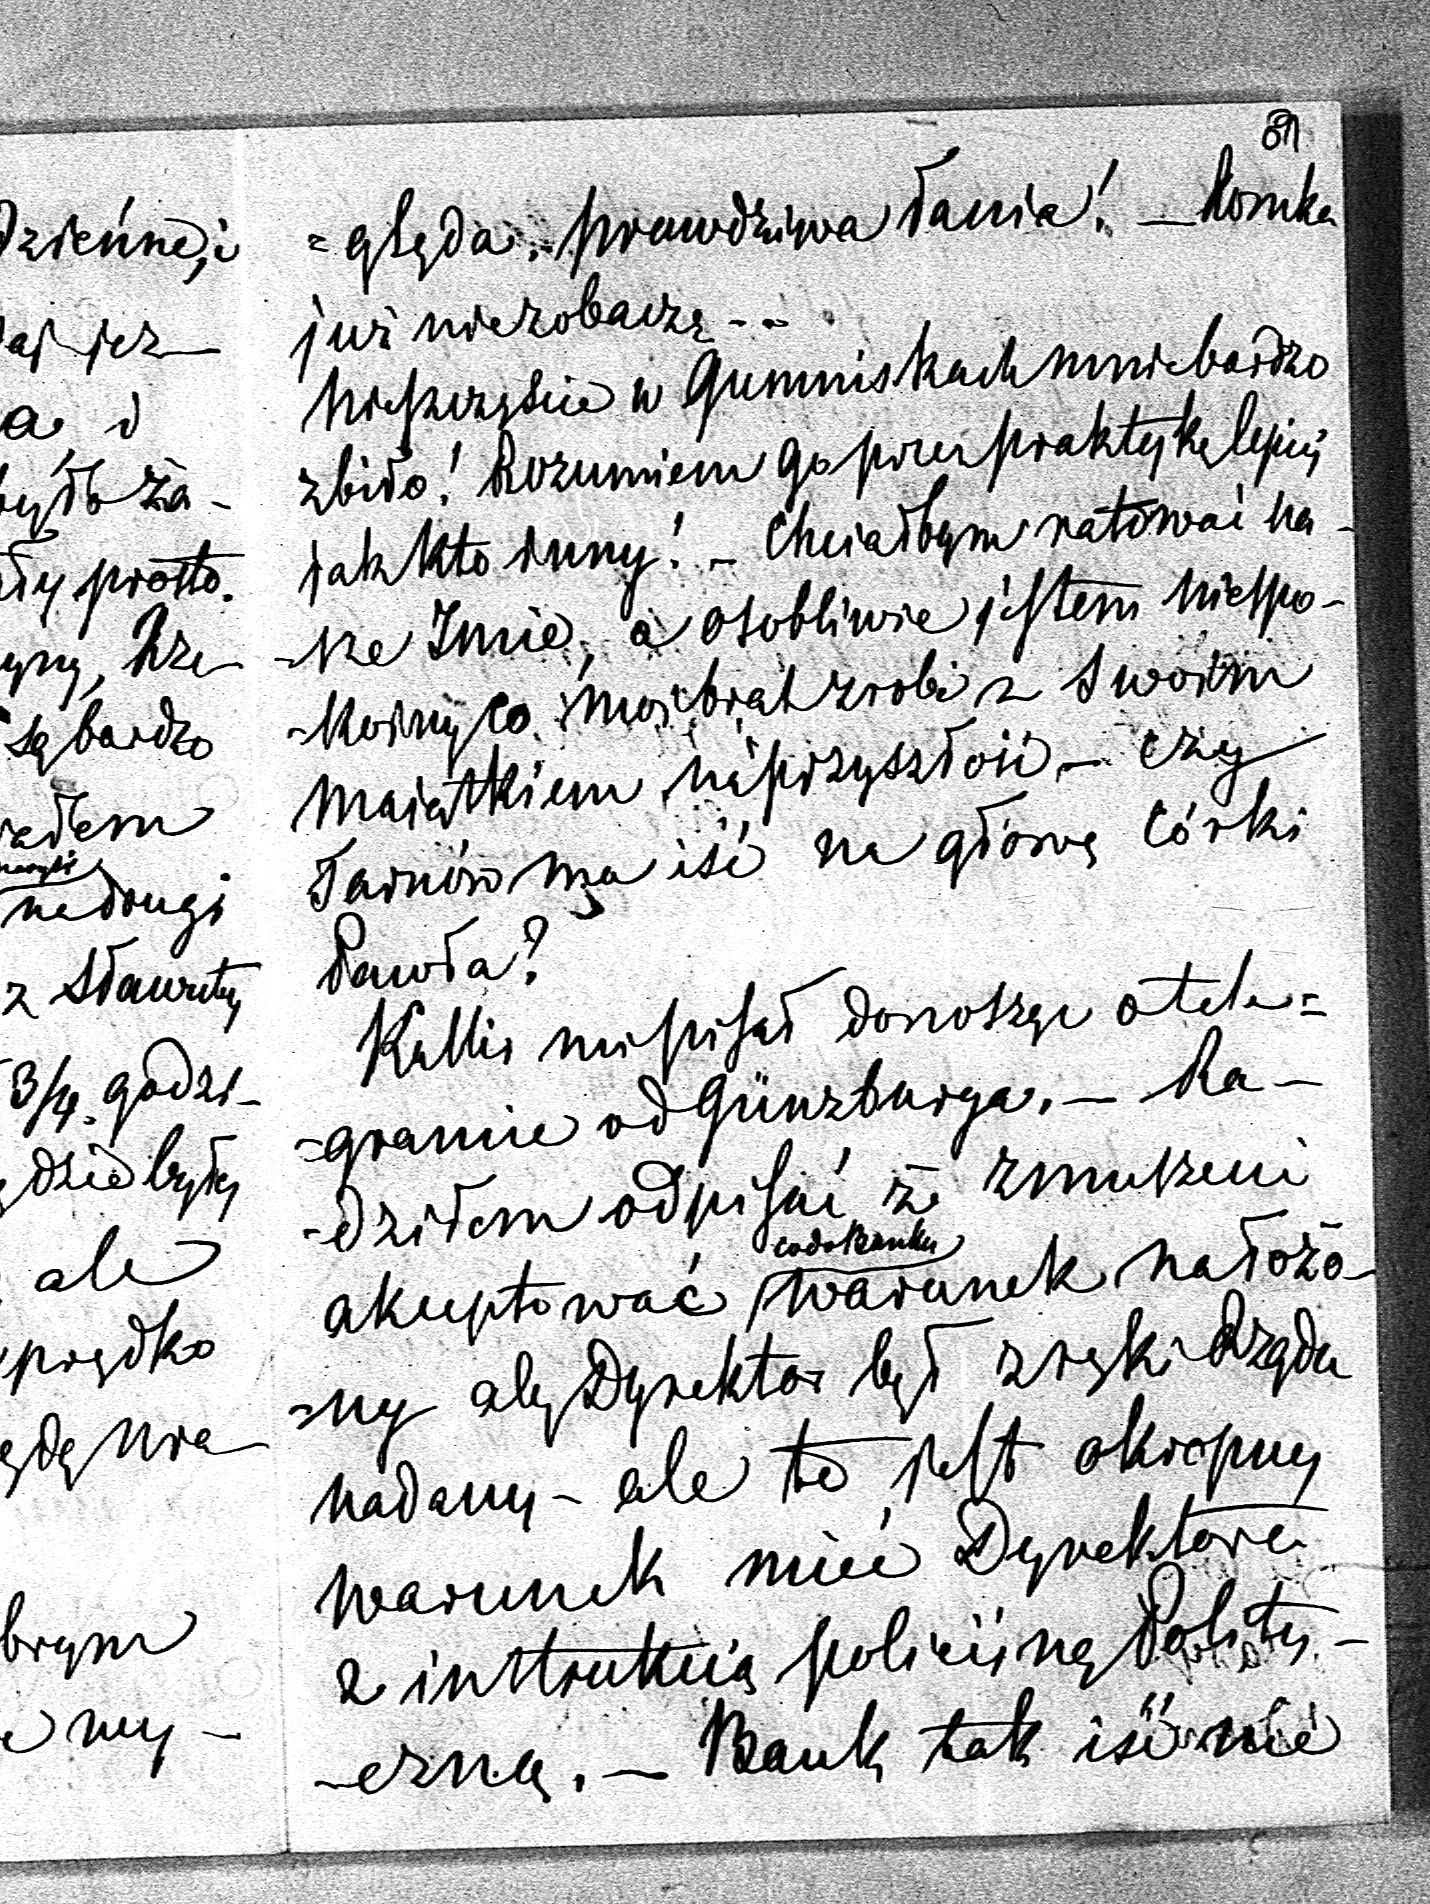 dzienne, i
aj jez-
a i
było za-
ały prosto.
yny, Krze-
są bardzo
adłem
na drugi
z Sławuty
3/4 godzi-
gdzie były
ale
prędko
będę wra-
brym
e wy-
=gląda. prawdziwa łania! — Romka
już nie zobaczę - - .
Nieszczęście w Gumniskach mnie bardzo
zbiło! Rozumiem go przez praktykę lepiej
jak kto inny! – Chciałbym ratować na-
-sze Imie, a osobliwie jestem niespo-
-kojny co moj brat zrobi z swoim
majątkiem na przyszłość – czy
Tarnów ma iść na głowę córki
Pawła?
Kallir mi pisał donosząc o tele=
-gramie od Günzburga. — Ra-
-dziłem odpisać że zmuszeni
akceptować co do Banku warunek nałożo-
=ny aby Dyrektor był z ręki Rządu
nadany – ale to jest okropny
warunek mieć Dyrektora
z instrukcią policijną Polity-
-czną. — Bank tak iść nie